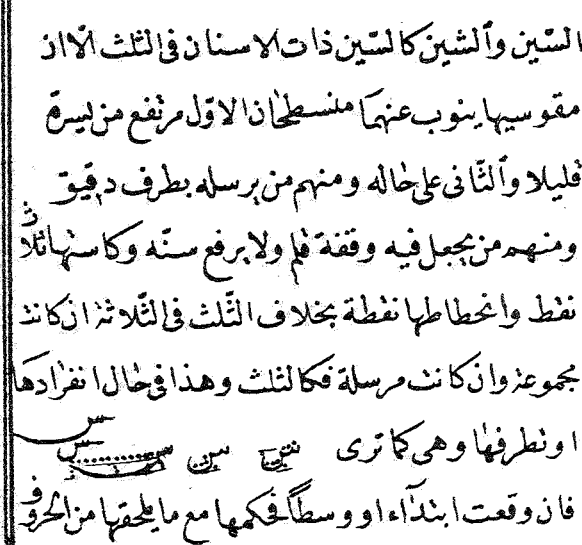 السّين والشين كالسّين ذات الاسنان فى الثلث الّا ان
مقوسيها ينوب عنهما منسطحان الاوّل مرتفع من يسرة
قليلا والثّانى على حاله ومنهم من يرسله بطرف دقيق
ومنهم من يجعل فيه وقفة قلم ولا يرفع سنّه وكاسنها ثلاث
نقط وانحطاطها نقطة بخلاف الثّلث فى الثّلاثة ان كانت
مجموعة وان كانت مرسلة فكالثلث وهذا فى حال انفرادها
او تطرفها وهى كما ترى س س س س س
فان وقعت ابتدآء او وسطاً فحكمها مع ما يلحقها من الحروف